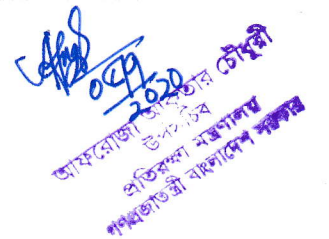 ০৫/৭
2020
আফরোজা আকতার চৌধুরী
উপসচিব
প্রতিরক্ষা মন্ত্রণালয়
গণপ্রজাতন্ত্রী বাংলাদেশ সরকার